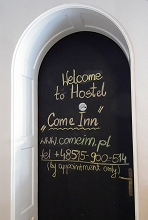 Welcome
to Hostel
"Come Inn"
www.comeinn.pl
tel +48515-900-514
(by appointment only)